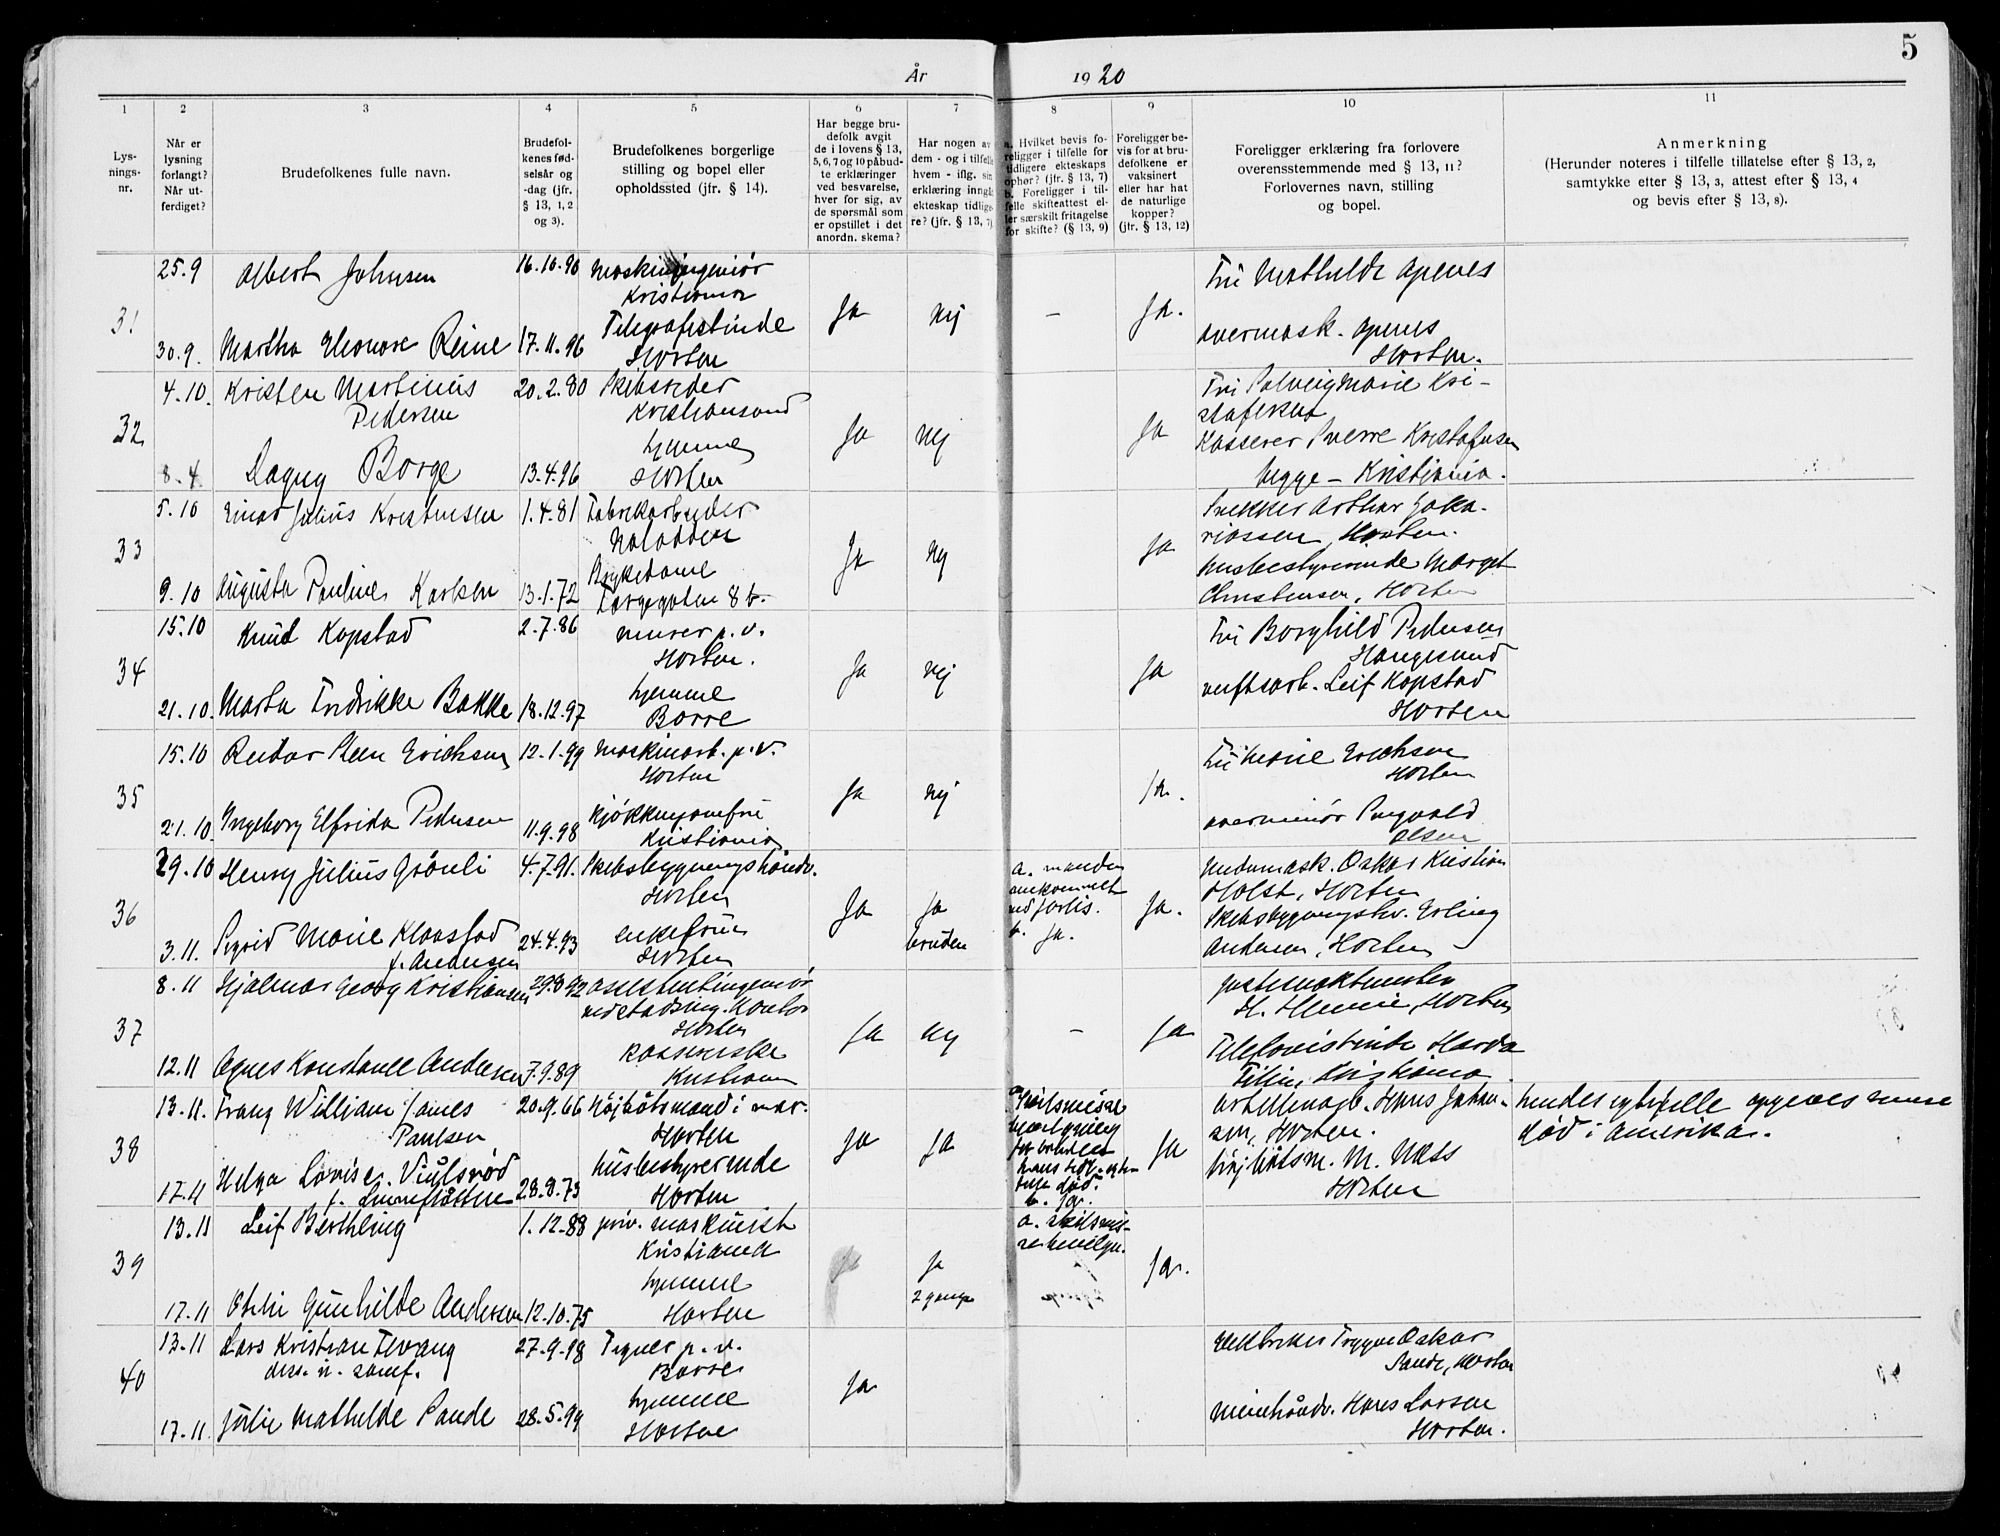 5
År 1920
1 2 3 4 5 6 7 8 9 10 11
Lys-
nings-
nr.
Når er
lysning
forlangt?
Når ut-
ferdiget?
Brudefolkenes fulle navn.
Brudefol-
kenes fød-
selsår og
-dag (jfr.
§ 13, 1, 2
og 3).
Brudefolkenes borgerlige
stilling og bopel eller
opholdssted (jfr. § 14).
Har begge bru-
defolk avgit
de i lovens § 13,
5, 6, 7 og 10 påbud-
te erklæringer
ved besvarelse,
hver for sig, av
de spørsmål som
er opstillet i det
anordn. skema?
Har nogen av
dem - og i tilfelle
hvem - iflg. sin
erklæring inngå
ekteskap tidlige-
re? (jfr. § 13, 7)
a. Hvilket bevis fo-
religger i tilfelle for
tidligere ekteskaps
ophør? (jfr. § 13, 7)
b. Foreligger i til-
felle skifteattest el-
ler særskilt fritagelse
for skifte? (§ 13, 9)
Foreligger be-
vis for at bru-
defolkene er
vaksinert
eller har hat
de naturlige
kopper?
(jfr. § 13, 12)
Foreligger erklæring fra forlovere
overensstemmende med § 13, 11?
Forlovernes navn, stilling
og bopel.
Anmerkning
(Herunder noteres i tilfelle tillatelse efter § 13, 2,
samtykke etter § 13, 3, attest efter § 13, 4
og bevis efter § 13, 8).
31
25.9 Albert Johnsen 16.10.90 Maskiningeniør
Kristiania
30.9. Martha Eleonore Reine 17.11.96 Telegrafistinde
Horten
Ja Nej - Ja.
Fru Mathilde Apenes
overmask. Apenes
Horten.
32
4.10. Kristen Martinius
Pedersen 20.2.80 Skibsreder
Kristiansand
8.4 Dagny Borge 13.4.96 hjemme
Horten
Ja Nej Ja
Fru Solveig Marie Kri-
stofersen
Kasserer Sverre Kristofersen
begge - Kristiania.
33
5.10 Einar Julius Kristensen 1.4.81 Fabrikarbeider
9.10 Augusta Pauline Karlsen 13.1.72
Torggaten 8 b.
Ja Nej Ja
Snekker Arthur Jaka-
riassen, Horten.
Husbestyrerinde Margit
Christensen, Horten
34
15.10 Knut Kopstad 2.7.86 murer p.v.
Horten.
21.10. Marta Fredrikke Bakke 18.12.97 hjemme
Borre
Ja Nej Ja
Fru Borghild Pedersen
Haugesund
verftsarb. Leif Kopstad
Horten
35
15.10 Reidar Steen Erichsen 12.1.99 Maskinarb. p.v.
Horten
21.10. Ingeborg Elfrida Pedersen 11.9.98 Kjøkkenjomfru
Kristiania
Ja Nej Ja.
Fru Marie Erichsen
Horten
overminør Sigvald
Olsen
36
29.10 Henry Julius Grönli 4.7.91. Skibsbygningshåndv.
Horten
3.11. Sigrid Marie Klaastad
f. Andersen 24.4.93 enkefrue
Horten
Ja Ja
bruden
a. manden
omkommet
ved forlis.
b. Ja.
Ja.
Undermask. Oskar Kristian
Holst, Horten
Skibsbygningshv. Erling
Andersen, Horten
37
8.11 Hjalmar Georg Kristiansen 29.8.92 assistentingeniør
Horten
12.11 Agnes Konstance Andersen 7.9.89 Kassererske
Kristiania
Ja Nej - Ja
H. Hennie, Horten
Telefonistinde Harda
Kristiania
38
13.11. Franz William James
Paulsen 20.9.66 Højbåtsmand i mar.
Horten
17.11 Helga Lovise Viulsrød
28.8.75 husbestyrerinde
Horten
Ja Ja
b. Ja.
Ja
Hans Johan-
sen, Horten.
højbåtsm. M. Næss
Horten
hendes egtefelle opgives være
død i Amerika.
39
13.11 Leif Berthling 1.12.88 priv. maskinist
Kristiania
17.11 Othilie Gunhilde Andersen 12.10.75 hjemme
Horten
Ja Ja
2 gange
a. skilsmis-
sebevilgn.
Ja.
40
13.11 Lars Kristian Tevang
diss. u. samf. 27.9.98 Tegner p.v.
Borre
17.11 Julie Mathilde Sande 28.5.99 hjemme
Horten
Ja
Trygve Oskar
Sande, Horten
minehåndv. Hans Larsen
Horten.